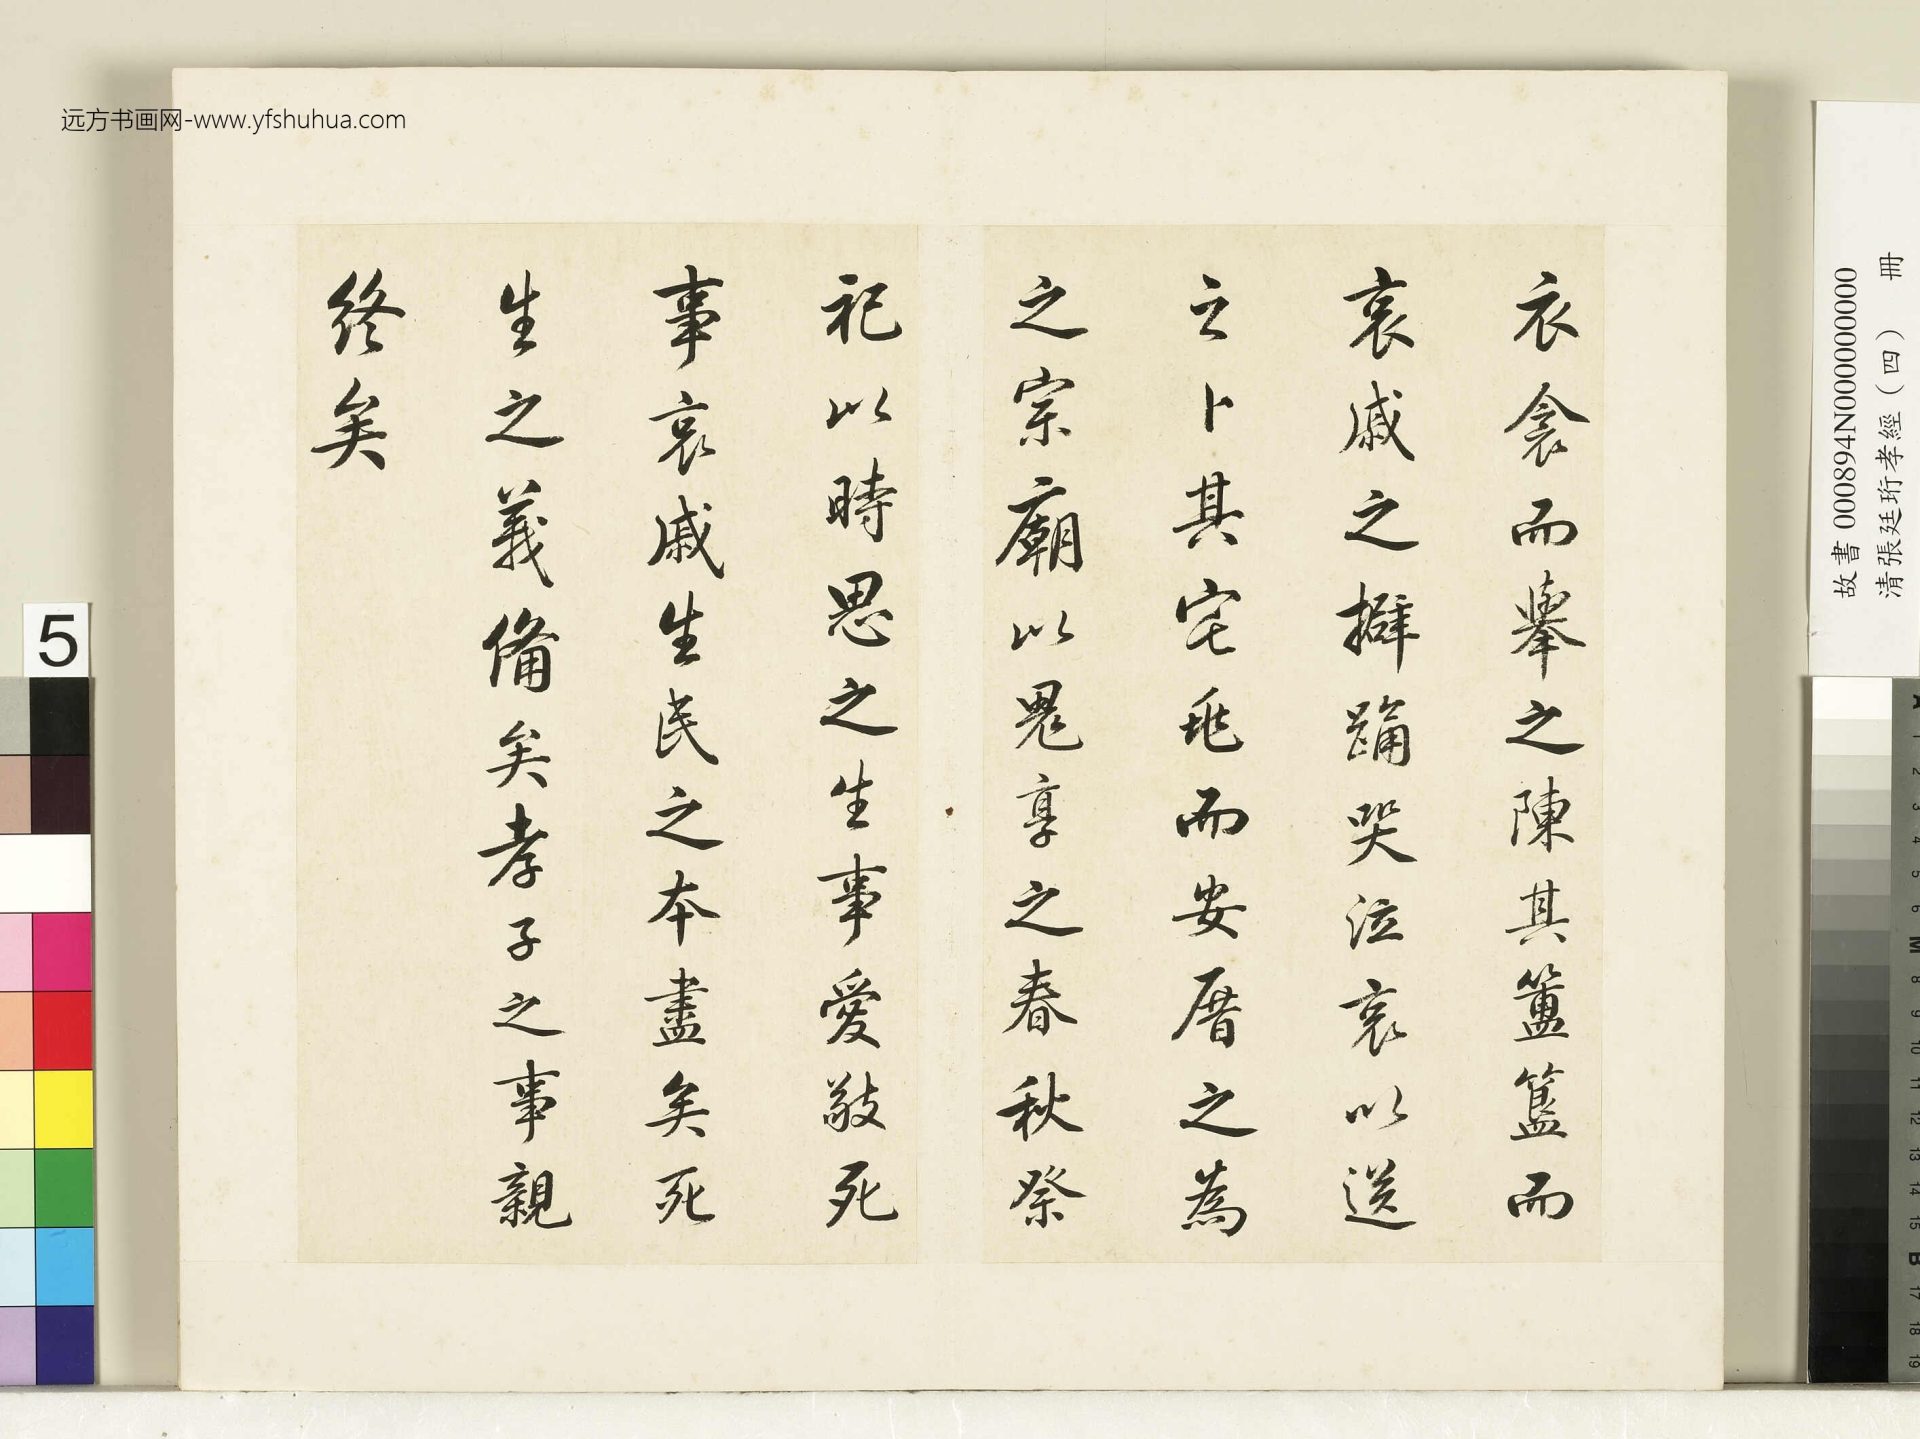 衣衾而舉之陳其簠簋而
哀戚之擗踊哭泣哀以送
之卜其宅兆而安厝之為
之宗廟以鬼享之春秋祭
祀以時思之生事愛敬死
事哀戚生民之本盡矣死
生之義備矣孝子之事親
終矣
远方书画网-www.yfshuhua.com
故書 000894N000000000
清張廷珩孝經（四） 冊
5
A 1 2 3 4 5 6 M 8 9 10 11 12 13 14 15 B 17 18 19